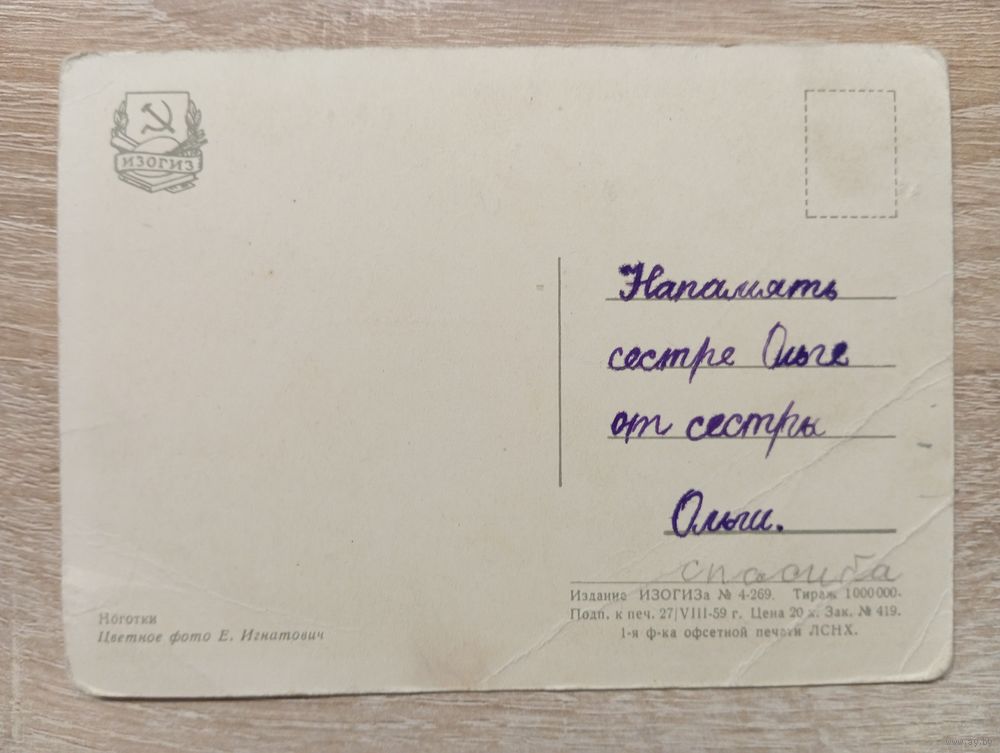 ИЗОГИЗ
Напамять
сестре Ольге
от сестры
Ольги.
спасиба
Издание ИЗОГИЗа № 4-269. Тираж 1000000.
Подп. к печ. 27/VIII-59 г. Цена 20 к. Зак. № 419.
1-я ф-ка офсетной печати ЛСНХ.
Ноготки
Цветное фото Е. Игнатович
www.ay.by